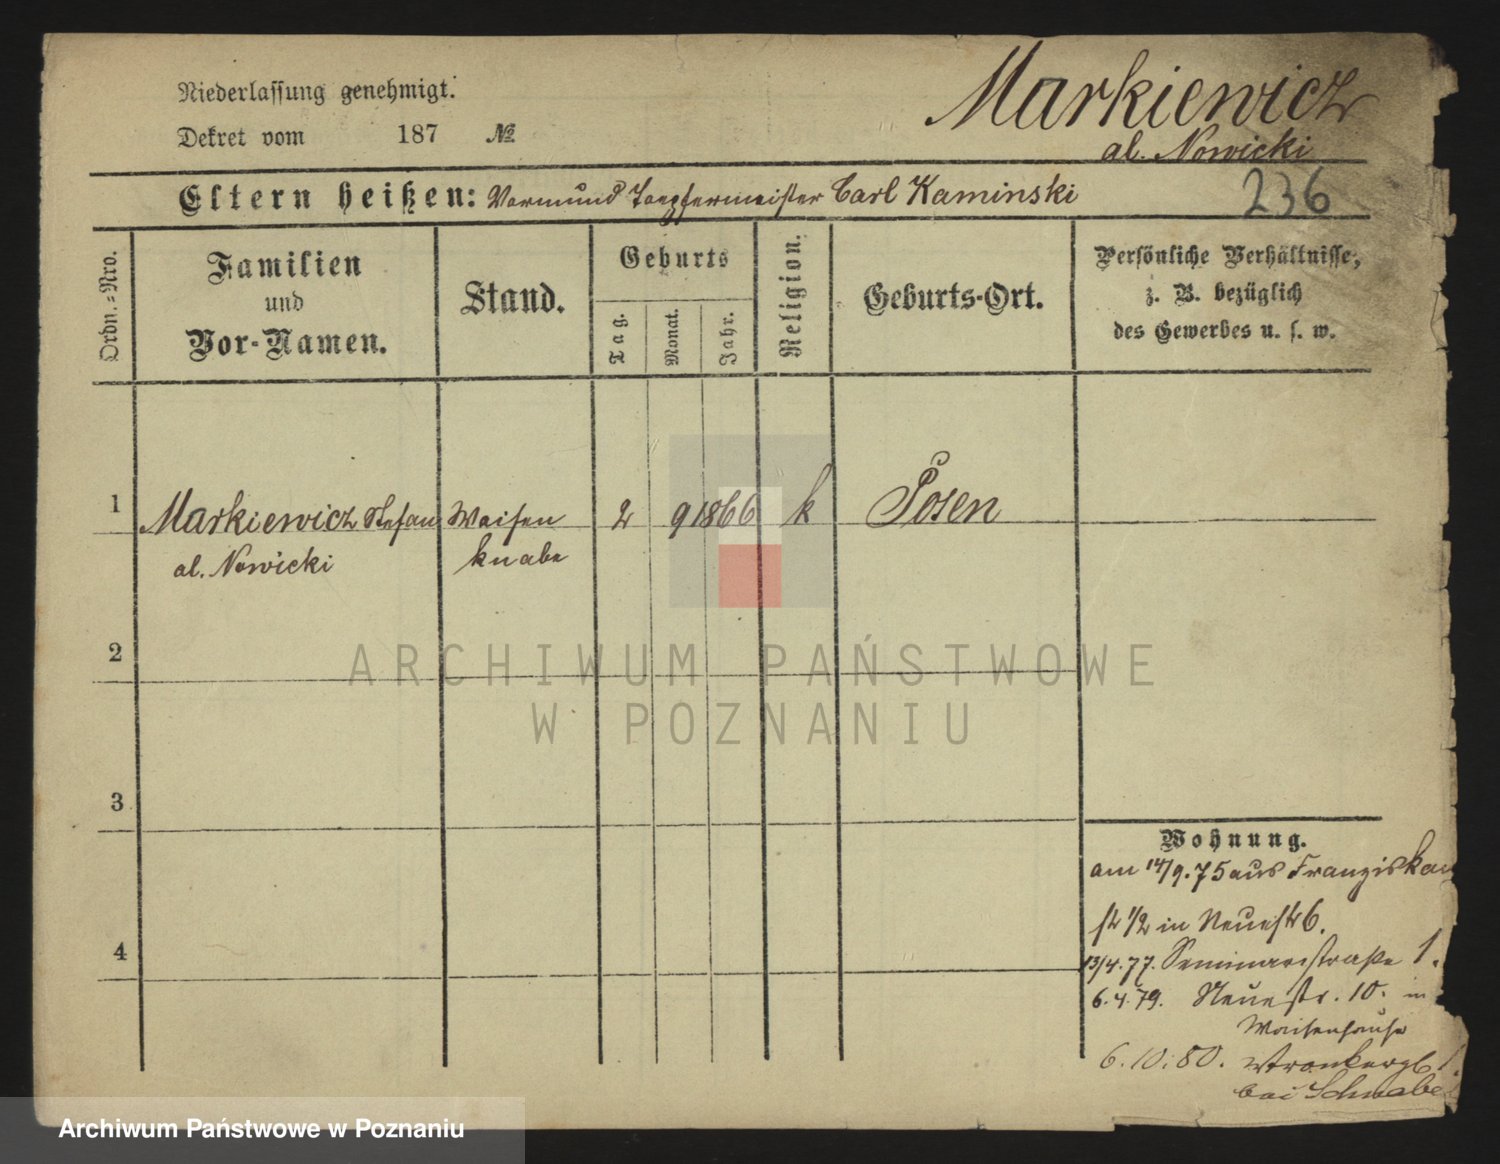 Niederlassung genehmigt.
Markiewicz
Dekret vom 187 №
al. Nowicki
Eltern heißen: Vormund Toepfermeister Carl Kaminski
236
Ordn.-Nro.
Familien
und
Vor-Namen.
Stand.
Geburts
Tag.
Monat.
Jahr.
Religion.
Geburts-Ort.
Persönliche Verhältnisse,
z. B. bezüglich
des Gewerbes u. s. w.
1 Markiewicz Stefan Waisen 2 9 1866 k Posen
al. Nowicki knabe
2
3
4
Wohnung.
am 14/9.75 aus Franziskan
st 1/2 in Neuestr 6.
13/4.77. Seminarstraße 1.
6.4.79. Neuestr. 10. im
Waisenhause
6.10.80. 1.
bei Schnabel
ARCHIWUM PAŃSTWOWE
W POZNANIU
Archiwum Państwowe w Poznaniu